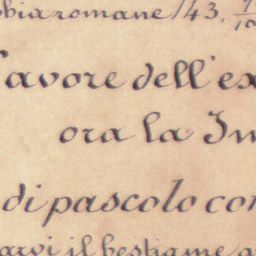 bbia romane 143.
favore dell'ex
ora la In
di pascolo con
arvi il bestiame